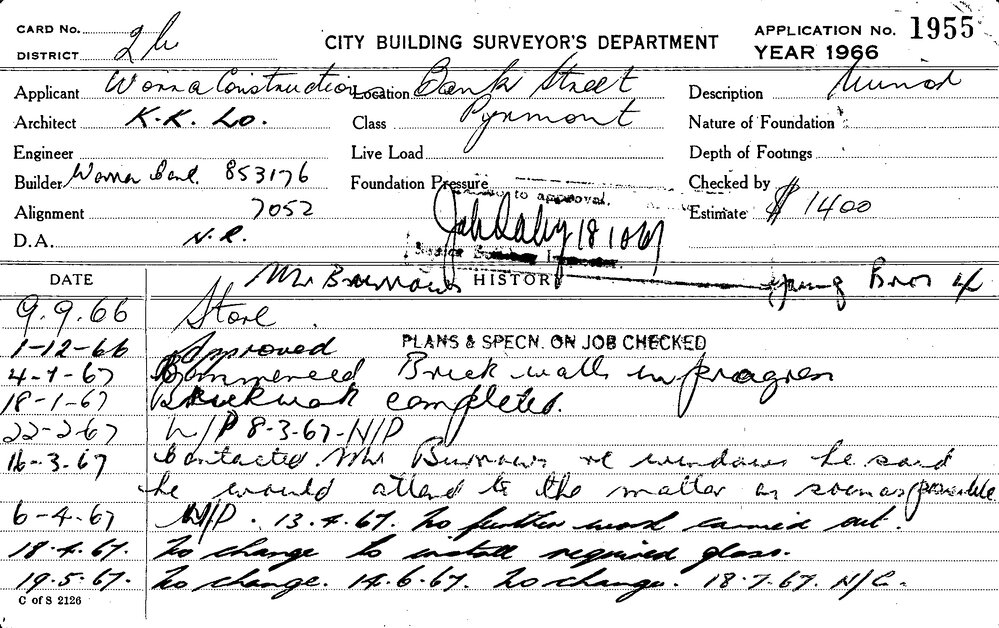 CARD No.
DISTRICT 2b
CITY BUILDING SURVEYOR'S DEPARTMENT
APPLICATION No. 1955
YEAR 1966
Applicant Worra Construction Location Bank Street Description Minor
Architect K.K. Lo. Class Pyrmont Nature of Foundation
Engineer Live Load Depth of Footings
Builder Worra Conl. 853176 Foundation Pressure Checked by
to approval.
Alignment 7052 Estimate $ 1400
D.A. N.R. 18 10 67
DATE Mr Burrows HISTORY Young Bros
9.9.66 Store.
1-12-66 Approved PLANS & SPECN. ON JOB CHECKED
4-1-67 Commenced Brick walls in progress
18-1-67 Brickwork completed.
22-2-67 W/P 8-3-67-N/P
16-3.67 Contacted Mr Burrows re windows he said
he would attend to the matter as soon as possible
6-4-67 N/P. 13.4.67. No further work carried out.
18.4.67. No change to install required glass.
19.5.67. No change. 14.6.67. No change. 18.7.67. N/C.
C of S 2126